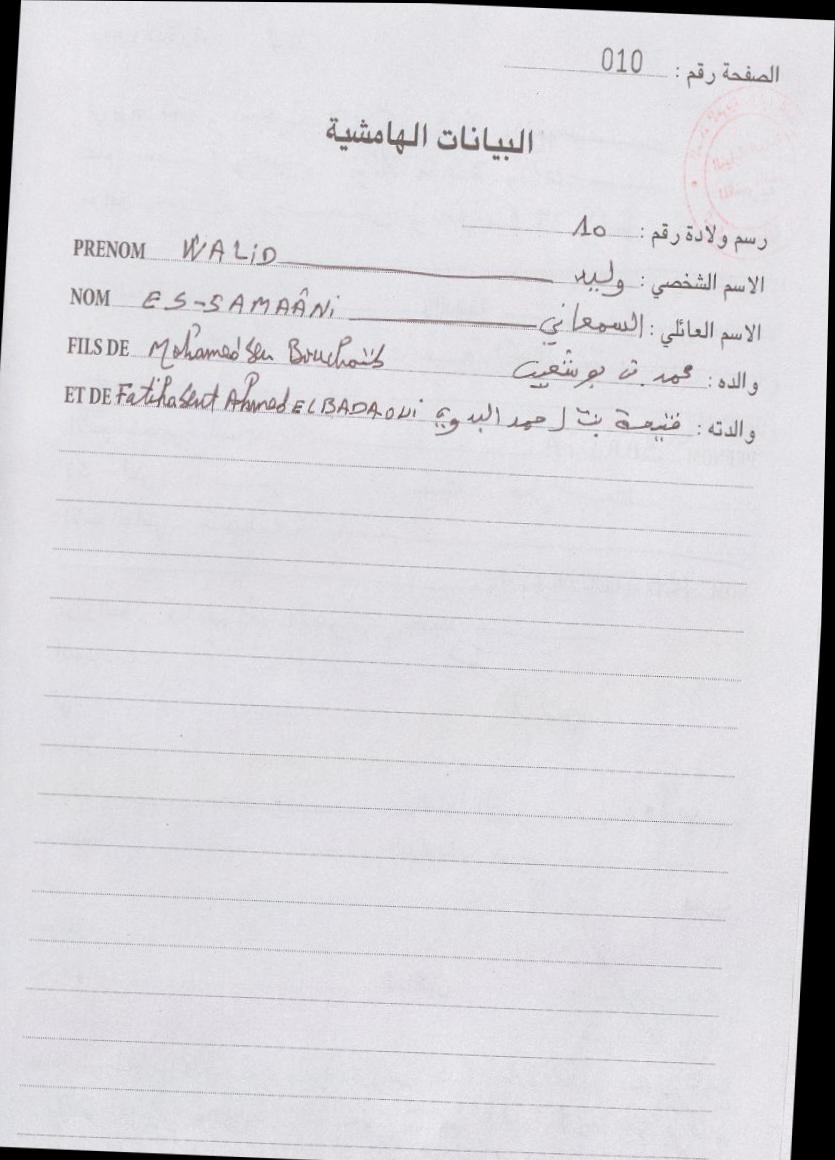 الصفحة رقم : 010
البيانات الهامشية
رسم ولادة رقم : 10
PRENOM WALID الاسم الشخصي : وليد
NOM ES-SAMAÂNi الاسم العائلي : السمعاني
FILS DE Mohamed ben Bouchaïb والده : محمد بن بوشعيب
ET DE Fatiha bent Ahmed EL BADAOUI والدته : فتيحة بنت احمد البدوي